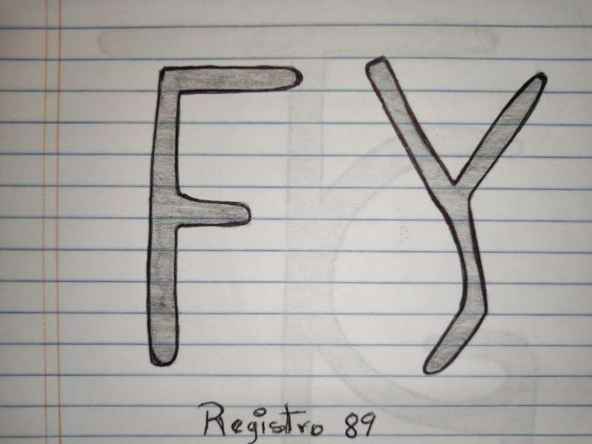 FY
Registro 89